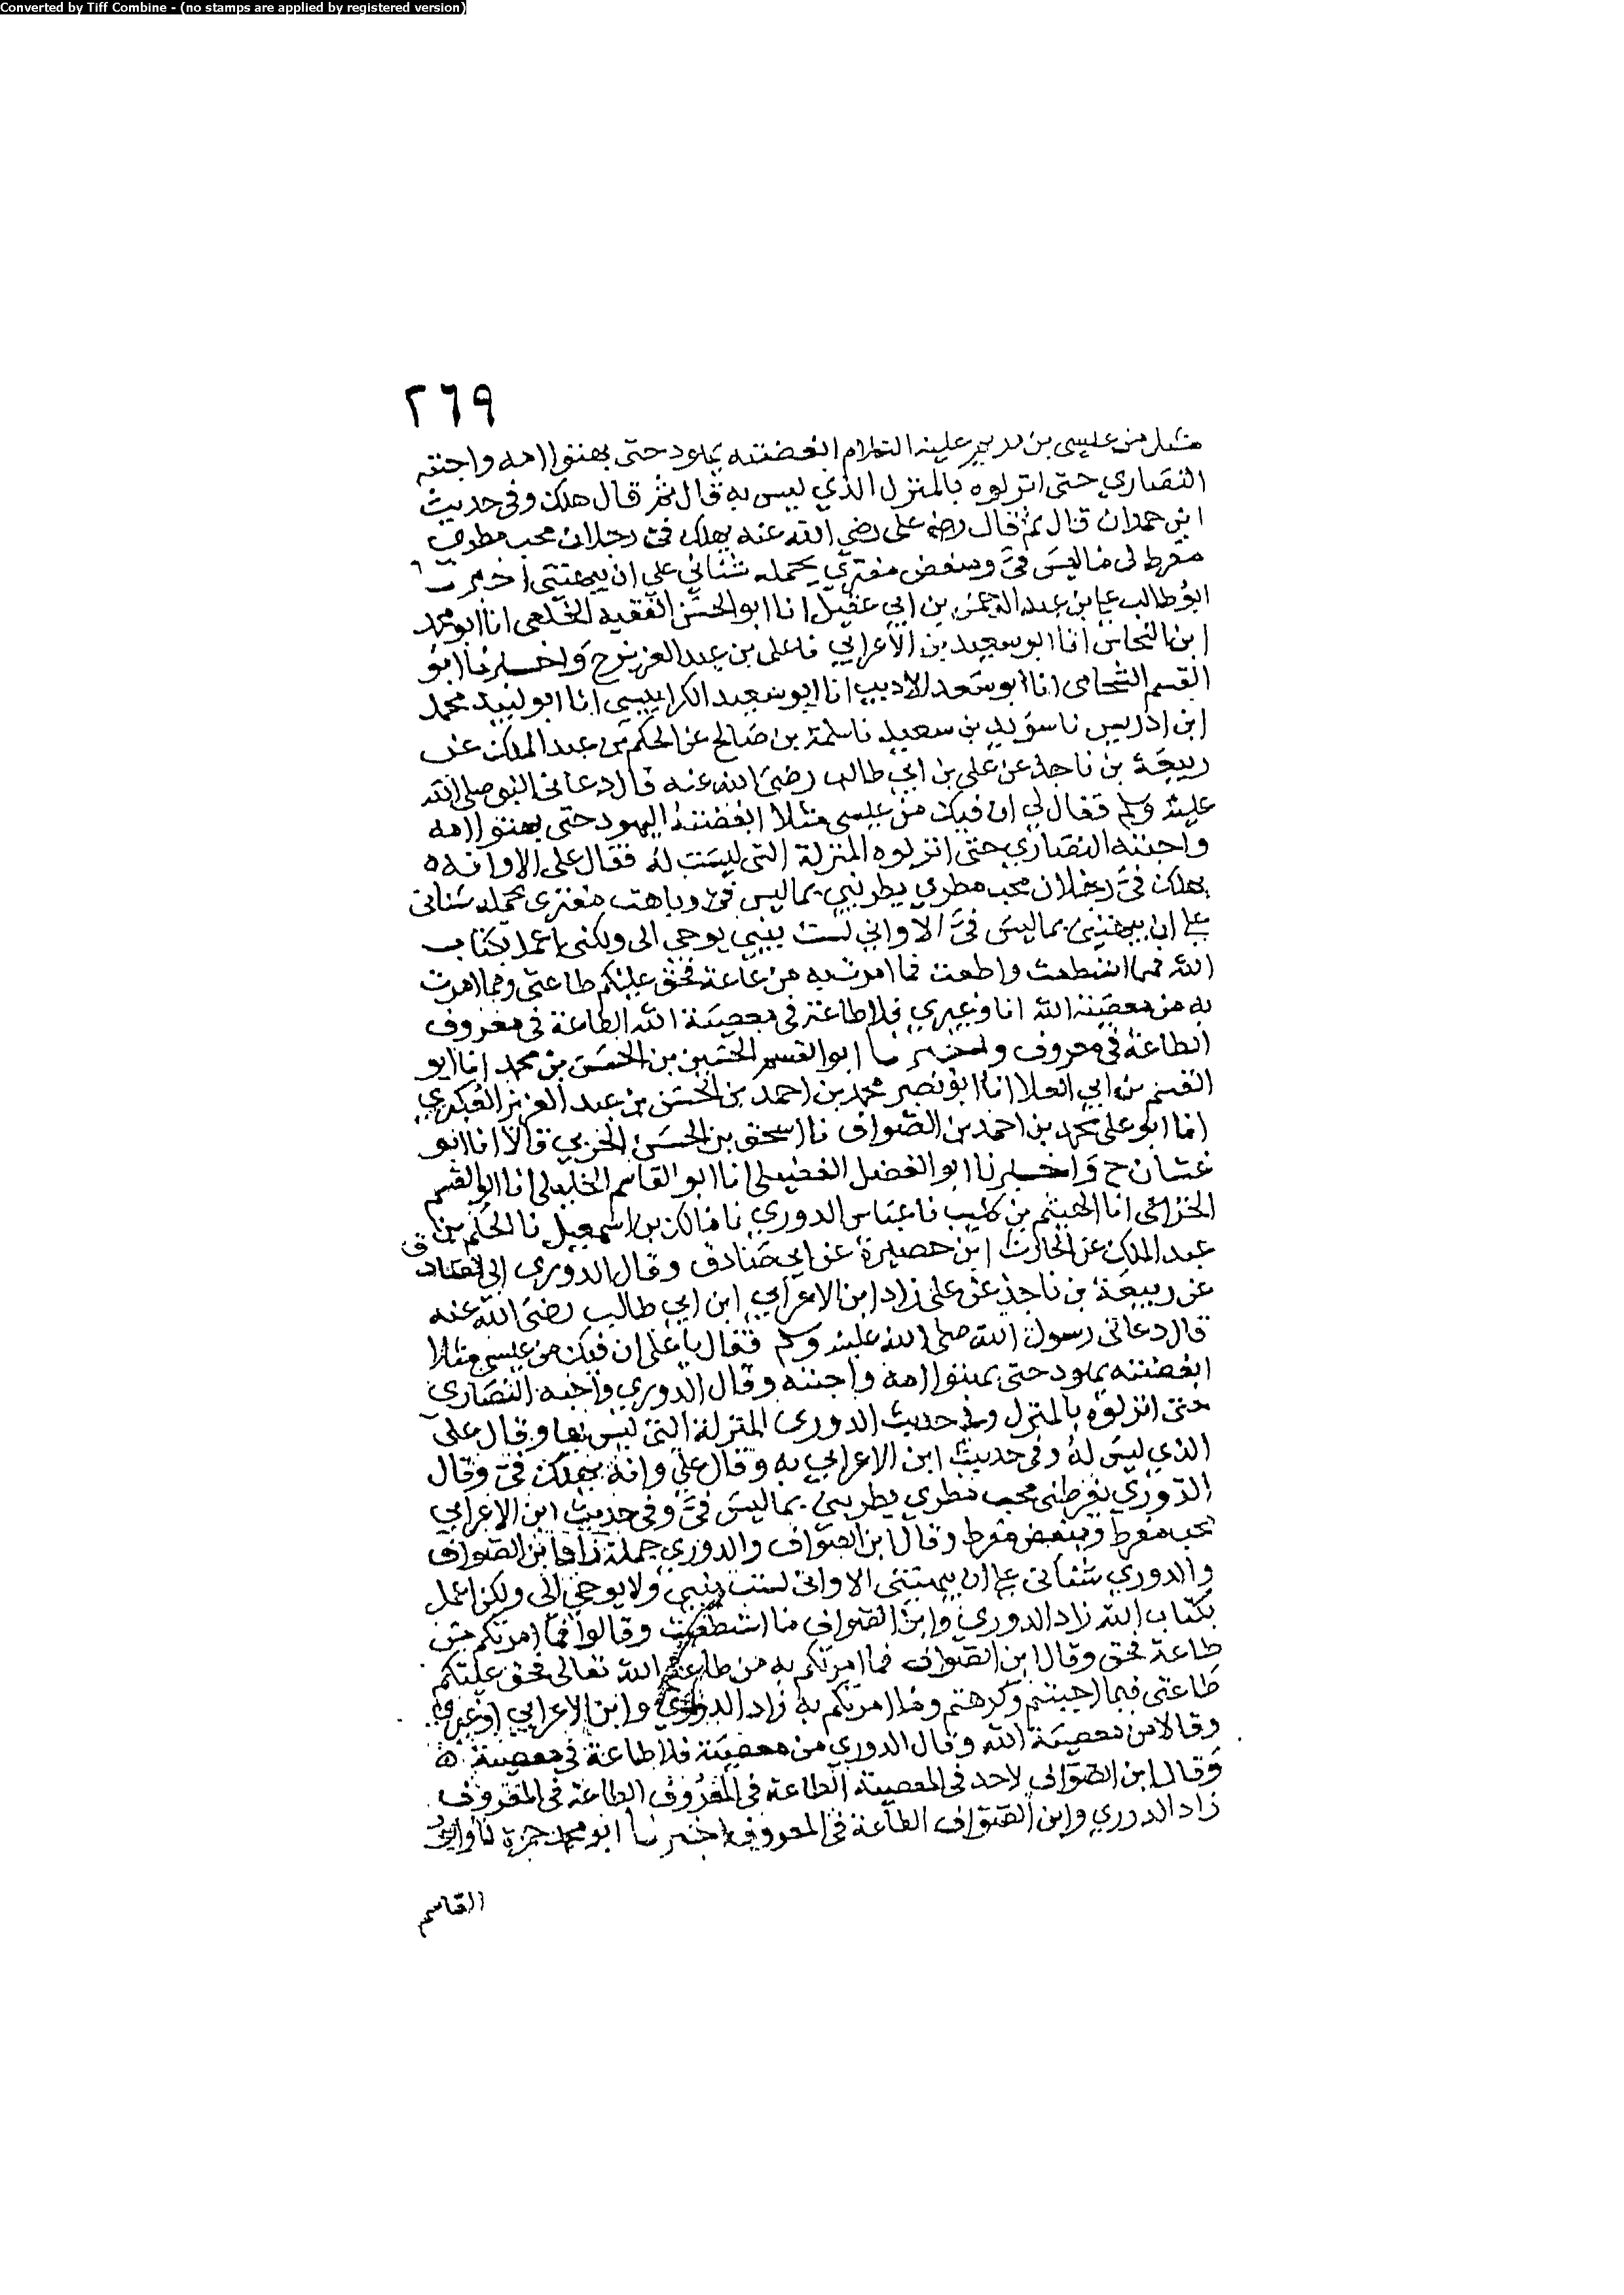 Converted by Tiff Combine - (no stamps are applied by registered version)
٢٦٩
مثل من عيسى بن مريم عليه السلام ابغضته يهود حتى بهتوا امه واحبته
النصارى حتى انزلوه بالمنزل الذي ليس به قال ثم قال هلك وفي حديث
ابن حمدان قال ثم قال على رضي الله عنه يهلك في رجلان محب مطري
مفرط لى ما ليس في ومبغض مفتري يحمله شناني على ان يبهتني اخبرنا
ابو طالب علي بن عبد الرحمن بن ابي عقيل انا ابو الحسن الفقيه الخلعي انا ابو محمد
ابن النحاس انا ابو سعيد بن الاعرابي نا على بن عبد العزيز ح واخبرنا ابو
القسم الشحامى انا ابو سعد الاديب انا ابو سعيد الكرابيسي انا ابو لبيد محمد
ابن ادريس نا سويد بن سعيد نا سلمة بن صالح عن الحكم بن عبد الملك عن
ربيعة بن ناجذ عن علي بن ابي طالب رضي الله عنه قال دعاني النبي صلى الله
عليه وسلم فقال لي ان فيك من عيسى مثلا ابغضته اليهود حتى بهتوا امه
واحبته النصارى حتى انزلوه المنزلة التي ليست له فقال على الا وانه
يهلك في رجلان محب مطري يطريني بما ليس في وباهت مفترى يحمله شناني
على ان يبهتني بما ليس في الا واني لست بنبي يوحى الي ولكني اعمل بكتاب
الله مما استطعت واطعت فما امرت به من طاعة فحق عليكم طاعتي وما امرت
به من معصية الله انا وغيري فلا طاعة في معصية الله الطاعة في معروف
الطاعة في معروف واخبرنا ابو القسم الحسين بن الحسن بن محمد انا ابو
القسم بن ابي العلا انا ابو نصر محمد بن احمد بن الحسن بن عبد العزيز العكبري
انا ابو على محمد بن احمد بن الصواف نا اسحق بن الحسن الحربي قالا انا ابو
غسان ح واخبرنا ابو الفضل الفضيلي انا ابو القاسم الخليلي انا ابو القسم
الخزاعي انا الهيثم بن كليب نا عباس الدوري نا مالك بن اسمعيل نا الحكم بن
عبد الملك عن الحارث ابن حصيرة عن ابي صادق وقال الدوري ابي الصادق
عن ربيعة بن ناجذ عن على زاد ابن الاعرابي ابن ابي طالب رضي الله عنه
قال دعاني رسول الله صلى الله عليه وسلم فقال يا على ان فيك من عيسى مثلا
ابغضته يهود حتى بهتوا امه واحبته وقال الدوري واحبه النصارى
حتى انزلوه بالمنزل وفي حديث الدوري المنزلة التي ليس بها وقال على
الذي ليس له وفي حديث ابن الاعرابي به وقال علي وانه يهلك في وقال
الدوري يفرطني محب مطري يطريني بما ليس في وفي حديث ابن الاعرابي
محب مفرط ومبغض مفرط وقال ابن الصواف والدوري حمله زاد ابن الصواف
والدوري شناني على ان يبهتني الا واني لست بنبي ولا يوحى الي ولكن اعمل
بكتاب الله زاد الدوري وابن الصواف ما استطعت وقالوا فما امرتكم من
طاعة فحق وقال ابن الصواف فما امرتكم به من طاعة الله تعالى فحق عليكم
طاعتي فيما احببتم وكرهتم وما امرتكم به زاد الدوري وابن الاعرابي او غيري
وقالا من معصية الله وقال الدوري من معصية فلا طاعة في معصية
وقال ابن الصواف لاحد في المعصية الطاعة في المعروف الطاعة في المعروف
زاد الدوري وابن الصواف الطاعة في المعروف اخبرنا ابو محمد حمزة
القاسم